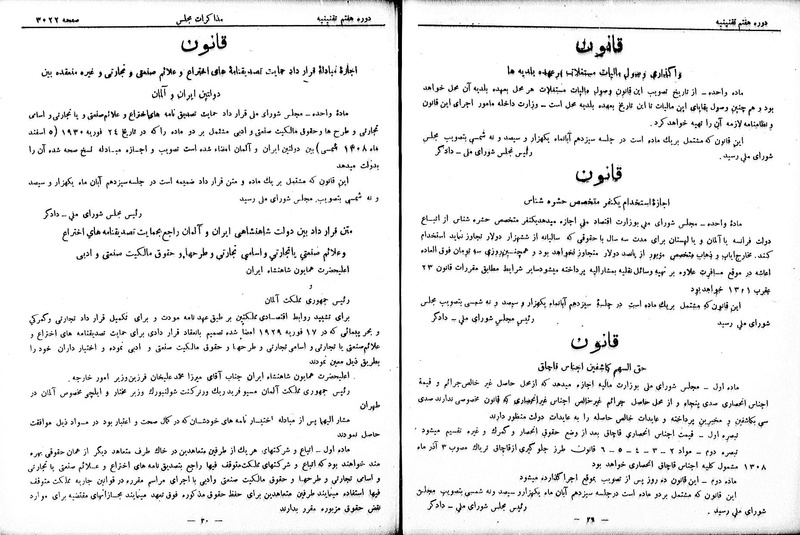 دوره هفتم تقنینیه
قانون
واگذاری وصول مالیات مستغلات بر عهده بلدیه ها
ماده واحده ـ از تاریخ تصویب این قانون وصول مالیات مستغلات هر محل بعهده بلدیه آن محل خواهد
بود و هم چنین وصول بقایای این مالیات تا این تاریخ بعهده بلدیه محل است ـ وزارت داخله مامور اجرای این قانون
و نظامنامه لازمه آن را تهیه خواهد کرد.
این قانون که مشتمل بر یک ماده است در جلسه سیزدهم آبانماه یکهزار و سیصد و نه شمسی بتصویب مجلس
شورای ملی رسید. رئیس مجلس شورای ملی ـ دادگر
قانون
اجازهٔ استخدام یکنفر متخصص حشره شناس
مادهٔ واحده ـ مجلس شورای ملی بوزارت اقتصاد ملی اجازه میدهد یکنفر متخصص حشره شناس از اتباع
دولت فرانسه یا آلمان و یا لهستان برای مدت سه سال با حقوقی که سالیانه از ششهزار دولار تجاوز نماید استخدام
کند. مخارج ایاب و ذهاب متخصص مزبور از پانصد دولار متجاوز نخواهد بود و همچنین روزی سه تومان فوق العاده
اعاشه در موقع مسافرت علاوه بر تهیه وسائل نقلیه بمشارالیه پرداخته میشود سایر شرایط مطابق مقررات قانون ۲۳
عقرب ۱۳۰۱ خواهد بود
این قانون که مشتمل بر یک ماده است در جلسهٔ سیزدهم آبانماه یکهزار و سیصد و نه شمسی بتصویب مجلس
شورای ملی رسید رئیس مجلس شورای ملی ـ دادگر
قانون
حق السهم کاشفین اجناس قاچاق
ماده اول ـ مجلس شورای ملی بوزارت مالیه اجازه میدهد که از محل حاصل غیر خالص جرائم و قیمة
اجناس انحصاری صدی پنجاه و از محل حاصل جرائم غیر خالص اجناس غیر انحصاری که قانون مخصوصی ندارند صدی
سی بکاشفین و مخبرین پرداخته و عایدات خالص حاصله را به عایدات دولت منظور دارند
تبصره اول ـ قیمت اجناس انحصاری قاچاق بعد از وضع حقوق انحصار و گمرک و غیره تقسیم میشود
تبصره دوم ـ مواد ۲ ـ ۳ ـ ۴ ـ ۵ ـ ۶ قانون طرز جلوگیری از قاچاق تریاک مصوب ۳ آذر ماه
۱۳۰۸ مشمول کلیه اجناس قاچاق انحصاری خواهد بود
ماده دوم ـ این قانون ده روز پس از تصویب بموقع اجرا گذارده میشود
این قانون که مشتمل بر دو ماده است در جلسه سیزدهم آبان ماه یکهزار و سیصد و نه شمسی بتصویب مجلس
شورای ملی رسید. رئیس مجلس شورای ملی ـ دادگر
ـ ۲۹ ـ
دوره هفتم تقنینیه مذاکرات مجلس صفحه ۳۰۲۲
قانون
اجازهٔ مبادلهٔ قرار داد حمایت تصدیقنامهٔ های اختراع و علائم صنعتی و تجارتی و غیره منعقده بین
دولتین ایران و آلمان
مادهٔ واحده ـ مجلس شورای ملی قرار داد حمایت تصدیق نامه های اختراع و علائم صنعتی و یا تجارتی و اسامی
تجارتی و طرح ها و حقوق مالکیت صنعتی و ادبی مشتمل بر دو ماده را که در تاریخ ۲۴ فوریه ۱۹۳۰ (۵ اسفند
ماه ۱۳۰۸ شمسی) بین دولتین ایران و آلمان امضاء شده است تصویب و اجازه مبادله نسخ صحه شده آن را
بدولت میدهد
این قانون که مشتمل بر یک ماده و متن قرار داد ضمیمه است در جلسه سیزدهم آبان ماه یکهزار و سیصد
و نه شمسی بتصویب مجلس شورای ملی رسید
رئیس مجلس شورای ملی ـ دادگر
متن قرار داد بین دولت شاهنشاهی ایران و آلمان راجع بحمایت تصدیقنامه های اختراع
و علائم صنعتی یا تجارتی و اسامی تجارتی و طرحها و حقوق مالکیت صنعتی و ادبی
اعلیحضرت همایون شاهنشاه ایران
و
رئیس جمهوری مملکت آلمان
برای تشیید روابط اقتصادی مملکتین بر طبق عهد نامه مودت و برای تکمیل قرار داد تجارتی و گمرکی
و بحر پیمائی که در ۱۷ فوریه ۱۹۲۹ امضا شده تصمیم بانعقاد قرار دادی برای حمایت تصدیقنامه های اختراع و
علائم صنعتی یا تجارتی و اسامی تجارتی و طرحها و حقوق مالکیت صنعتی و ادبی نموده و اختیار داران خود را
بطریق ذیل معین نمودند
اعلیحضرت همایون شاهنشاه ایران جناب آقای میرزا محمد علیخان فرزین وزیر امور خارجه.
رئیس جمهوری مملکت آلمان مسیو فریدریک ورنر کنت شولنبورک وزیر مختار و ایلچی مخصوص آلمان در
طهران
مشار الیها پس از مبادله اختیار نامه های خودشان که در کمال صحت و اعتبار بود در مواد ذیل موافقت
حاصل نمودند
ماده اول ـ اتباع و شرکتهای هر یک از طرفین متعاهدین در خاک طرف متعاهد دیگر از همان حقوقی بهره
مند خواهند بود که اتباع و شرکتهای مملکت متوقف فیها راجع بتصدیق نامه های اختراع و علائم صنعتی یا تجارتی
و اسامی تجارتی و طرحها و حقوق مالکیت صنعتی وادبی با اجرای مراسم مقرره در قوانین جاریه مملکت متوقف
فیها استفاده مینمایند طرفین متعاهدین برای حفظ حقوق مذکوره فوق تعهد مینمایند بمجازاتهای مقتضیه برای موارد
نقض حقوق مزبوره مقرر بدارند
ـ ۳۰ ـ